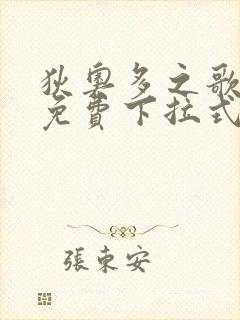 狄奧多之歌
免費下拉式
張東安